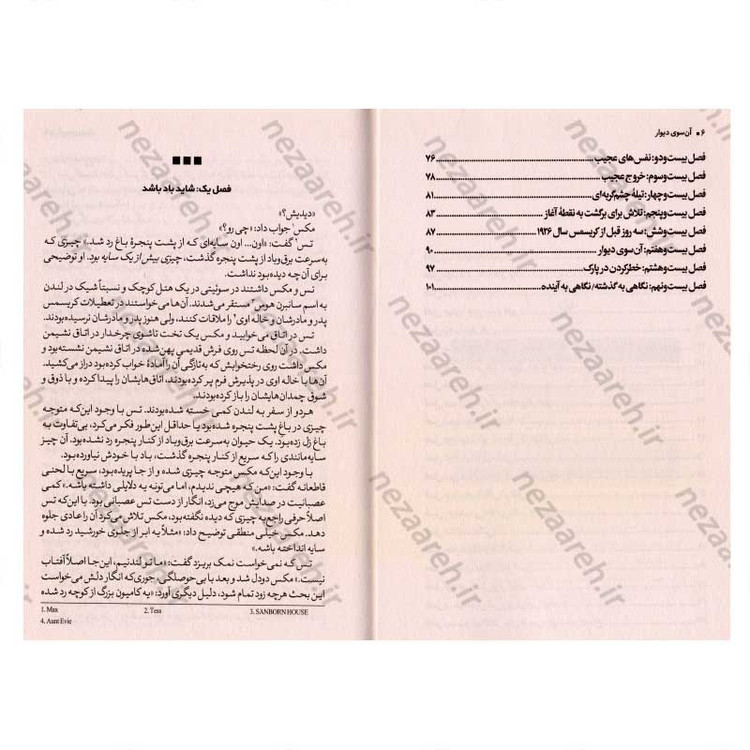 ۶ ■ آن‌سوی دیوار
فصل بیست‌ودو: نفس‌های عجیب ........ ۷۶
فصل بیست‌وسوم: خروج عجیب ........ ۷۸
فصل بیست‌وچهار: تیلهٔ چشم‌گربه‌ای ........ ۸۱
فصل بیست‌وپنجم: تلاش برای برگشت به نقطهٔ آغاز ........ ۸۳
فصل بیست‌وشش: سه روز قبل از کریسمس سال ۱۹۲۶ ........ ۸۷
فصل بیست‌وهفتم: آن‌سوی دیوار ........ ۹۰
فصل بیست‌وهشتم: خطر کردن در پارک ........ ۹۷
فصل بیست‌ونهم: نگاهی به گذشته/ نگاهی به آینده ........ ۱۰۱
■ ■ ■
فصل یک: شاید باد باشد
«دیدیش؟»
مکس¹ جواب داد: «چی رو؟»
تس² گفت: «اون... اون سایه‌ای که از پشت پنجرهٔ باغ رد شد.» چیزی که
به‌سرعت برق‌وباد از پشت پنجره گذشت، چیزی بیش از یک سایه بود. او توضیحی
برای آن‌چه دیده بود نداشت.
تس و مکس داشتند در سوئیتی در یک هتل کوچک و نسبتاً شیک در لندن
به اسم سانبرن هوس³ مستقر می‌شدند. آن‌ها می‌خواستند در تعطیلات کریسمس
پدر و مادرشان و خاله اوی⁴ را ملاقات کنند، ولی هنوز پدر و مادرشان نرسیده بودند.
تس در اتاق می‌خوابید و مکس یک تخت تاشوی چرخدار در اتاق نشیمن
داشت. در آن لحظه تس روی فرش قدیمی پهن‌شده در اتاق نشیمن نشسته بود و
مکس داشت روی رختخوابش که به‌تازگی آن را آمادهٔ خواب کرده بود دراز می‌کشید.
آن‌ها با خاله اوی در پذیرش فرم پر کرده بودند، اتاق‌هایشان را پیدا کرده و با ذوق و
شوق چمدان‌هایشان را باز کرده بودند.
هر دو از سفر به لندن کمی خسته شده بودند. تس با وجود این‌که متوجه
چیزی در باغ پشت پنجره شده بود یا حداقل این‌طور فکر می‌کرد، بی‌تفاوت به
باغ زل زده بود. یک حیوان به‌سرعت برق‌وباد از کنار پنجره رد نشده بود. آن چیز
سایه‌مانندی را که سریع از کنار پنجره گذشت، باد با خودش نیاورده بود.
با وجود این‌که مکس متوجه چیزی شده و از جا پریده بود، سریع با لحنی
قاطعانه گفت: «من که هیچی ندیدم، اما می‌تونه یه دلایلی داشته باشه.» کمی
عصبانیت در صدایش موج می‌زد، انگار از دست تس عصبانی بود. با این‌که تس
اصلاً حرفی راجع به چیزی که دیده نگفته بود، مکس تلاش می‌کرد آن را عادی جلوه
دهد. مکس خیلی منطقی توضیح داد: «مثلاً یه ابر از جلوی خورشید رد شده و
سایه انداخته باشه.»
تس که نمی‌خواست نمک بریزد گفت: «ما تو لندنیم، این‌جا اصلاً آفتاب
نیست.» مکس دودل شد و بعد با بی‌حوصلگی، جوری که انگار دلش می‌خواست
این بحث هرچه زود تمام شود، دلیل دیگری آورد: «یه کامیون بزرگ از کوچه رد شده
1. Max 2. Tess 3. SANBORN HOUSE
4. Aunt Evie
nezaareh.ir